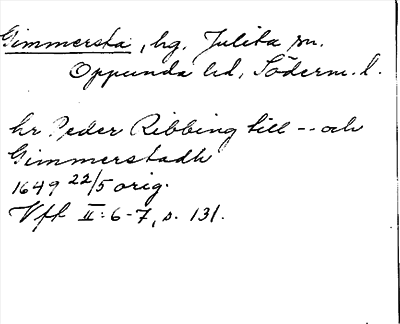 Gimmersta, hg. Julita sn.
Oppunda hd, Söderm. l.
hr Peder Ribbing till -- och
Gimmerstadh
1649 22/5 orig.
Vfl II:6-7, s. 131.